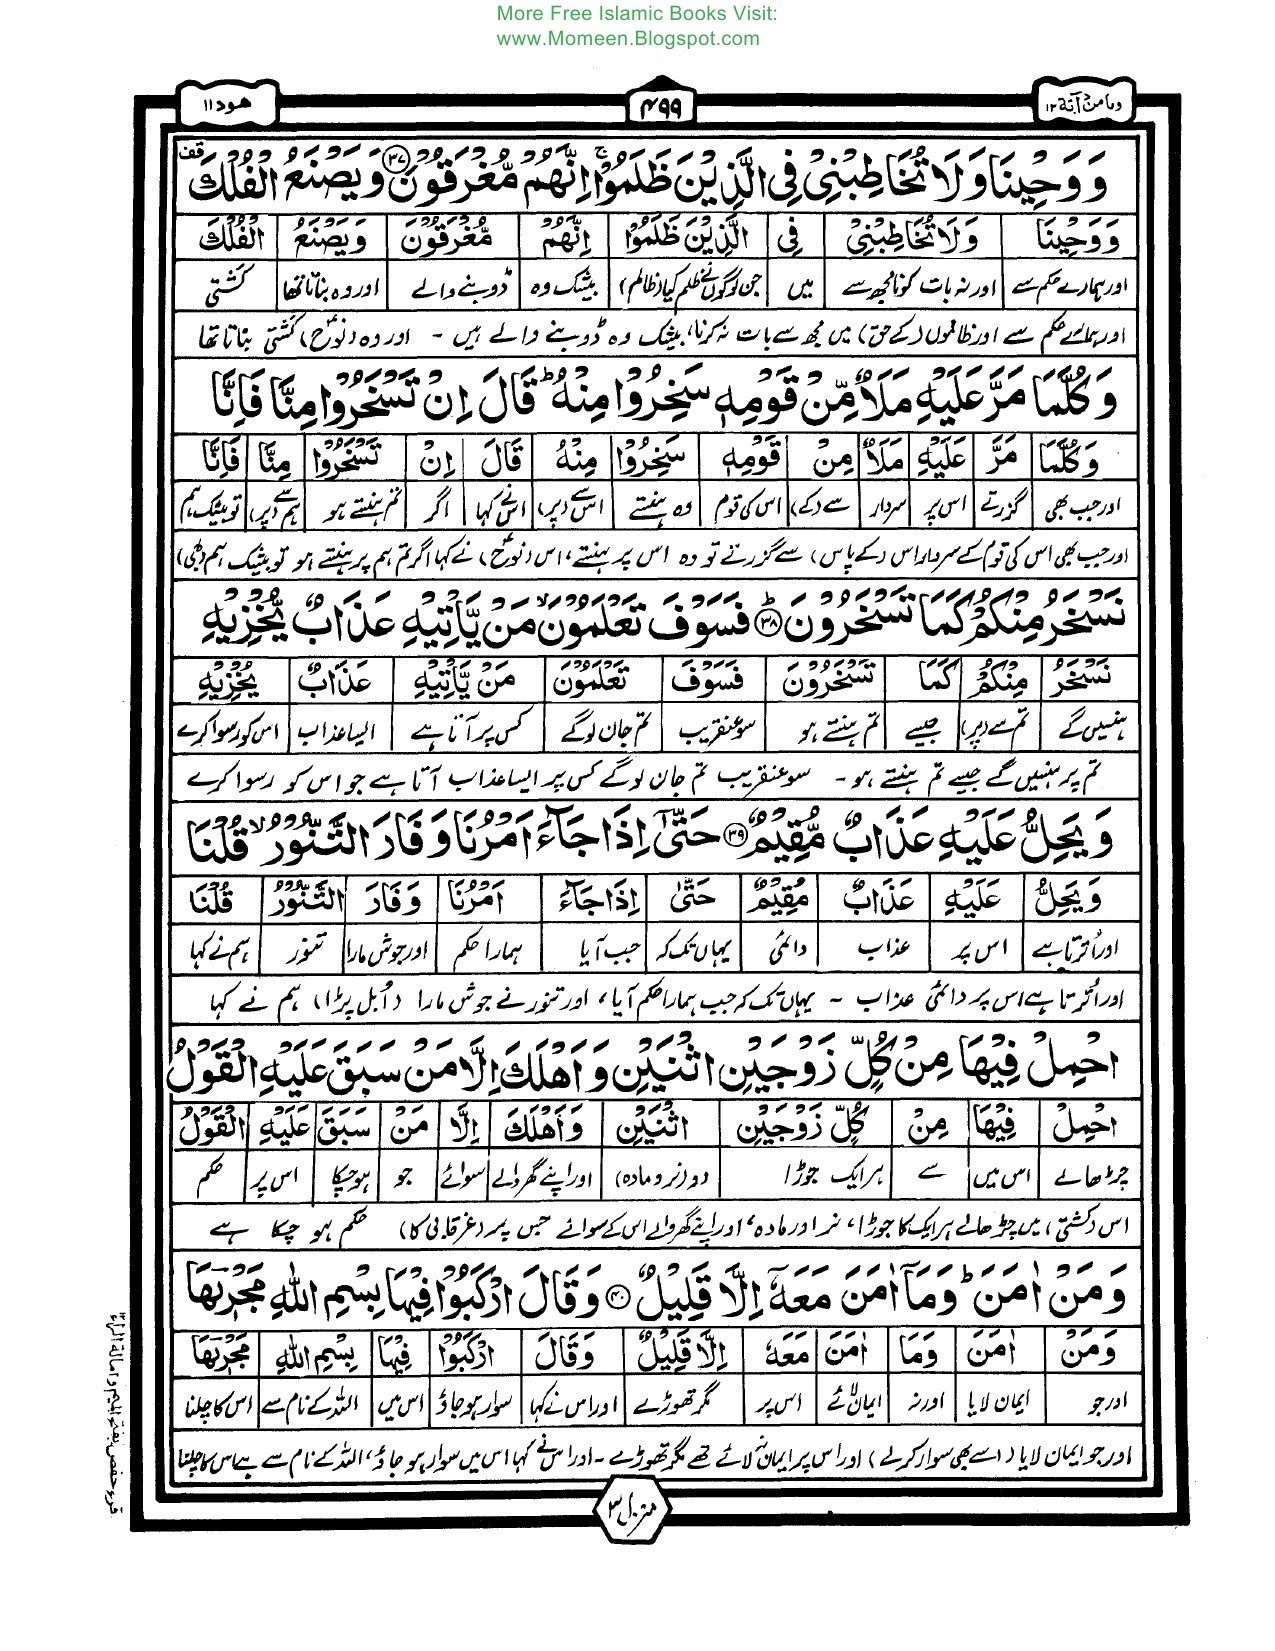 More Free Islamic Books Visit:
www.Momeen.Blogspot.com
وما من دآبة ۱۲ ۴۹۹ هود ۱۱
وَوَحْيِنَا وَلَا تُخَاطِبْنِىْ فِى الَّذِيْنَ ظَلَمُوْا ۚ اِنَّهُمْ مُّغْرَقُوْنَ ﴿۳۷﴾ وَيَصْنَعُ الْفُلْكَ قف
وَوَحْيِنَا وَلَا تُخَاطِبْنِىْ فِى الَّذِيْنَ ظَلَمُوْا اِنَّهُمْ مُّغْرَقُوْنَ وَيَصْنَعُ الْفُلْكَ
اور ہمارے حکم سے اور نہ بات کرنا مجھ سے میں جن لوگوں نے ظلم کیا (ظالم) بیشک وہ ڈوبنے والے اور وہ بناتا تھا کشتی
اور ہمارے حکم سے اور ظالموں (کے حق) میں مجھ سے بات نہ کرنا، بیشک وہ ڈوبنے والے ہیں - اور وہ (نوحؑ) کشتی بناتا تھا
وَكُلَّمَا مَرَّ عَلَيْهِ مَلَاٌ مِّنْ قَوْمِهٖ سَخِرُوْا مِنْهُ ؕ قَالَ اِنْ تَسْخَرُوْا مِنَّا فَاِنَّا
وَكُلَّمَا مَرَّ عَلَيْهِ مَلَاٌ مِنْ قَوْمِهٖ سَخِرُوْا مِنْهُ قَالَ اِنْ تَسْخَرُوْا مِنَّا فَاِنَّا
اور جب بھی گزرتے اس پر سردار سے (کے) اس کی قوم وہ ہنستے اس سے (پر) اس نے کہا اگر تم ہنستے ہو ہم سے (پر) تو بیشک ہم
اور جب بھی اس کی قوم کے سردار اس (کے پاس) سے گزرتے تو وہ اس پر ہنستے، اس (نوحؑ) نے کہا اگر تم ہم پر ہنستے ہو تو بیشک ہم (بھی)
نَسْخَرُ مِنْكُمْ كَمَا تَسْخَرُوْنَ ؕ ﴿۳۸﴾ فَسَوْفَ تَعْلَمُوْنَ ۙ مَنْ يَّاْتِيْهِ عَذَابٌ يُّخْزِيْهِ
نَسْخَرُ مِنْكُمْ كَمَا تَسْخَرُوْنَ فَسَوْفَ تَعْلَمُوْنَ مَنْ يَّاْتِيْهِ عَذَابٌ يُخْزِيْهِ
ہنسیں گے تم سے (پر) جیسے تم ہنستے ہو سو عنقریب تم جان لو گے کس پر آتا ہے ایسا عذاب اس کو رسوا کرے
تم پر ہنسیں گے جیسے تم ہنستے ہو - سو عنقریب تم جان لو گے کس پر ایسا عذاب آتا ہے جو اس کو رسوا کرے
وَيَحِلُّ عَلَيْهِ عَذَابٌ مُّقِيْمٌ ﴿۳۹﴾ حَتّٰٓى اِذَا جَآءَ اَمْرُنَا وَفَارَ التَّنُّوْرُ ۙ قُلْنَا
وَيَحِلُّ عَلَيْهِ عَذَابٌ مُقِيْمٌ حَتّٰى اِذَا جَآءَ اَمْرُنَا وَفَارَ التَّنُّوْرُ قُلْنَا
اور اترتا ہے اس پر عذاب دائمی یہاں تک کہ جب آیا ہمارا حکم اور جوش مارا تنور ہم نے کہا
اور اترتا ہے اس پر دائمی عذاب - یہاں تک کہ جب ہمارا حکم آیا، اور تنور نے جوش مارا (ابل پڑا) ہم نے کہا
احْمِلْ فِيْهَا مِنْ كُلٍّ زَوْجَيْنِ اثْنَيْنِ وَاَهْلَكَ اِلَّا مَنْ سَبَقَ عَلَيْهِ الْقَوْلُ
احْمِلْ فِيْهَا مِنْ كُلٍّ زَوْجَيْنِ اثْنَيْنِ وَاَهْلَكَ اِلَّا مَنْ سَبَقَ عَلَيْهِ الْقَوْلُ
چڑھا لے اس میں سے ہر ایک جوڑا دو (نر و مادہ) اور اپنے گھر والے سوائے جو ہو چکا اس پر حکم
اس (کشتی) میں چڑھا لے ہر ایک کا جوڑا، نر اور مادہ، اور اپنے گھر والے اس کے سوائے جس پر (غرقابی کا) حکم ہو چکا ہے
وَمَنْ اٰمَنَ ؕ وَمَآ اٰمَنَ مَعَهٗٓ اِلَّا قَلِيْلٌ ﴿۴۰﴾ وَقَالَ ارْكَبُوْا فِيْهَا بِسْمِ اللّٰهِ مَجْرٖىهَا
وَمَنْ اٰمَنَ وَمَا اٰمَنَ مَعَهٗ اِلَّا قَلِيْلٌ وَقَالَ ارْكَبُوْا فِيْهَا بِسْمِ اللّٰهِ مَجْرٖىهَا
اور جو ایمان لایا اور نہ ایمان لائے اس پر مگر تھوڑے اور اس نے کہا سوار ہو جاؤ اس میں اللہ کے نام سے اس کا چلنا
اور جو ایمان لایا (اسے بھی سوار کر لے) اور اس پر ایمان نہ لائے تھے مگر تھوڑے - اور اس نے کہا اس میں سوار ہو جاؤ، اللہ کے نام سے ہے اس کا چلنا
منزل ۳
قرء حفص بفتح الميم وامالة الراء ۱۲